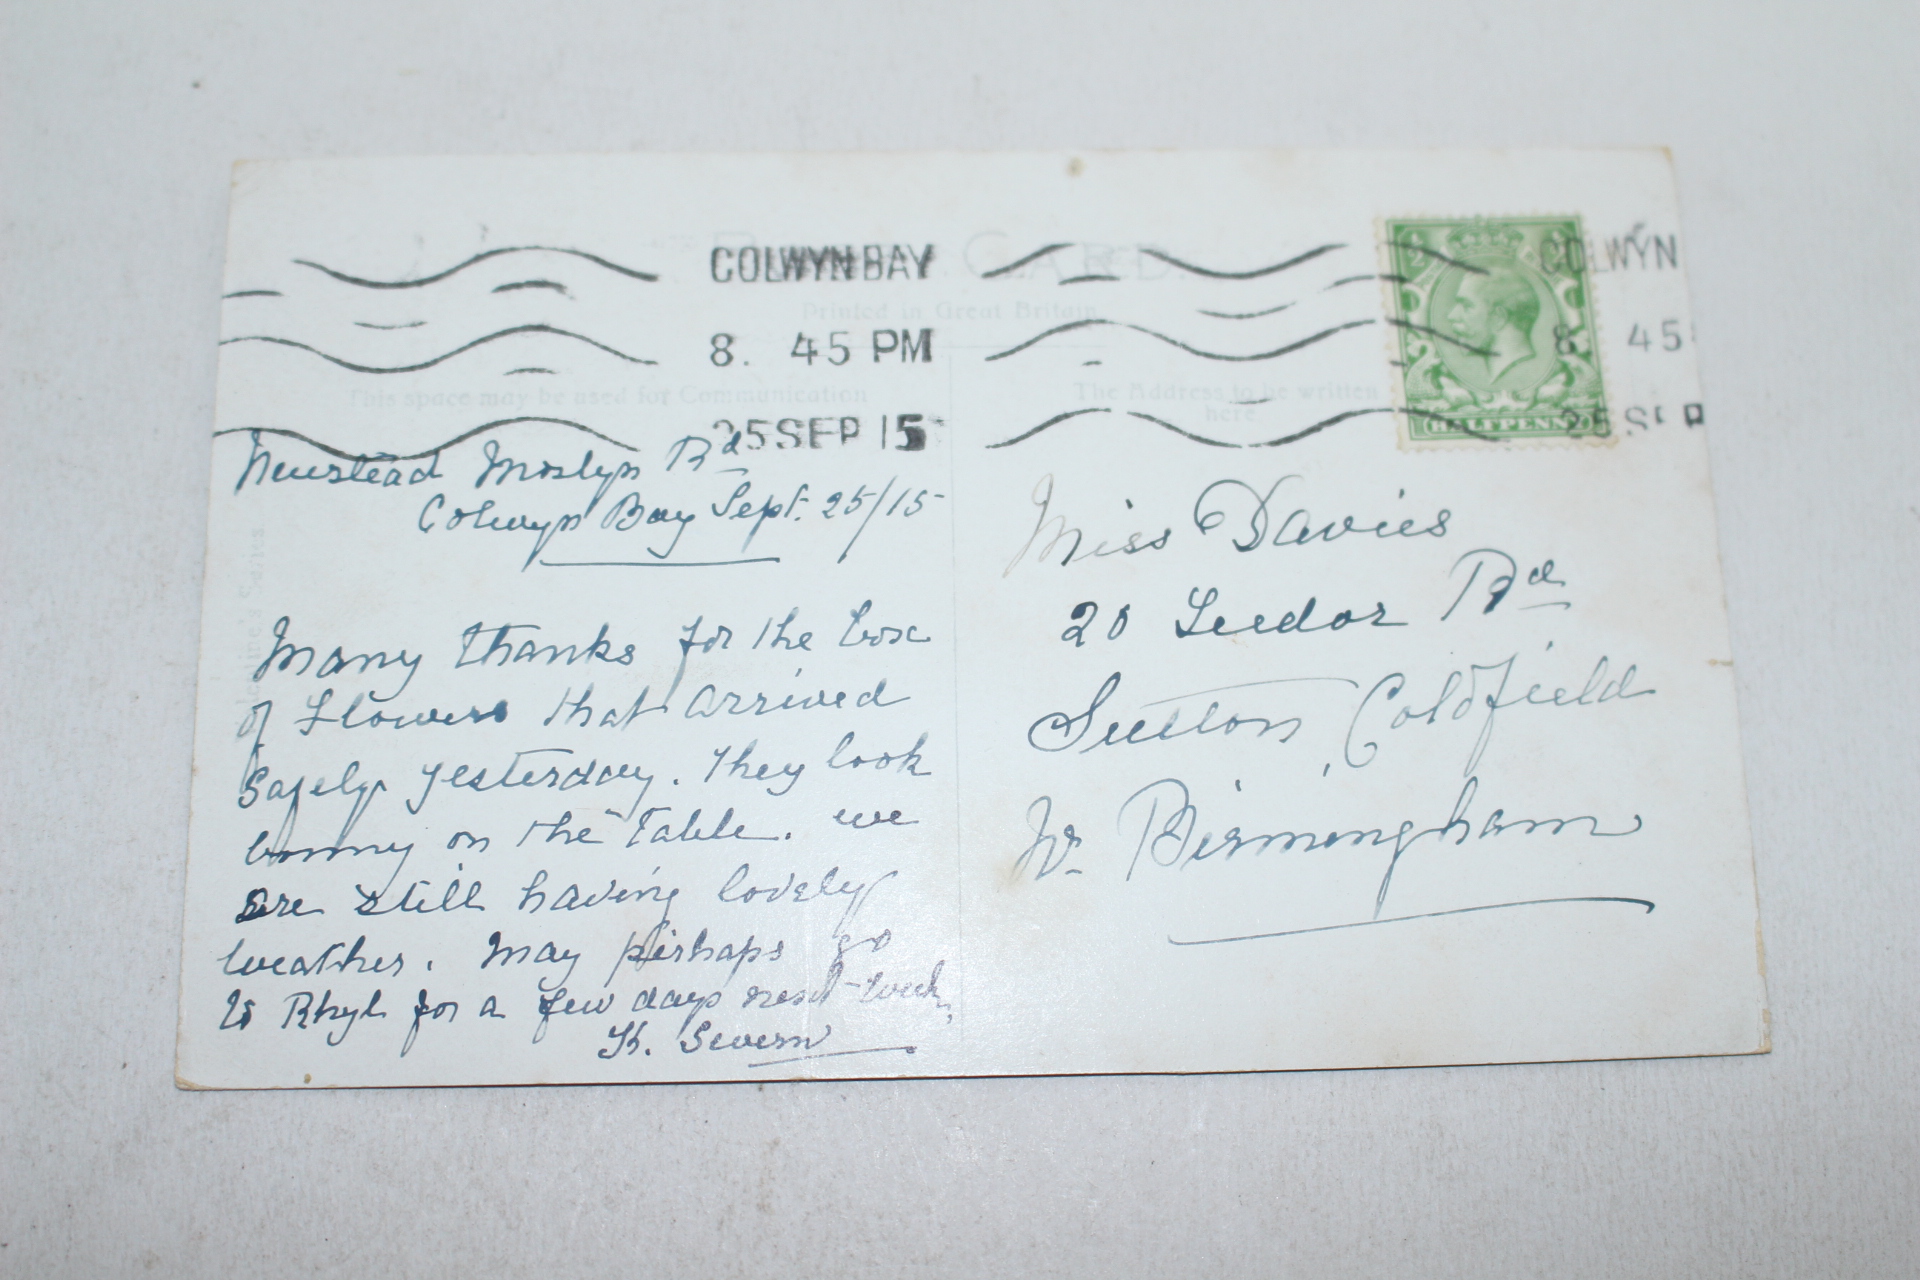 POST CARD.
Printed in Great Britain
This space may be used for Communication
The Address to be written
here.
COLWYN BAY
8. 45 PM
25 SEP 15
COLWYN
8. 45
25 SEP
HALFPENNY
Newstead Mostyn Rd
Colwyn Bay Sept. 25/15
Many thanks for the box
of Flowers that arrived
safely yesterday. They look
bonny on the Table. we
are still having lovely
weather. May perhaps go
to Rhyl for a few days next week,
H. Severn
Miss Davies
20 Tudor Rd
Sutton Coldfield
Nr Birmingham